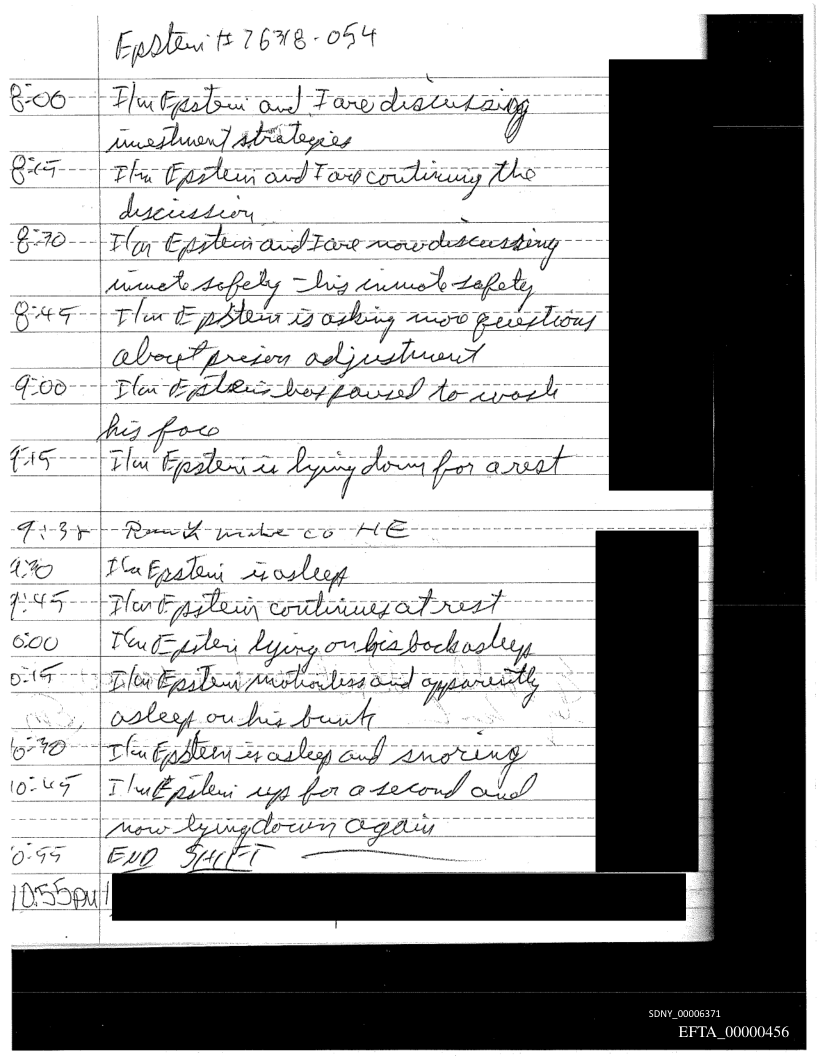 Epstein # 76318-054
8:00 I/m Epstein and I are discussing
investment strategies
8:15 I/m Epstein and I are continuing the
discussion
8:30 I/m Epstein and I are now discussing
inmate safety - his inmate safety
8:45 I/m Epstein is asking more questions
about prison adjustment
9:00 I/m Epstein has paused to wash
his face
9:15 I/m Epstein is lying down for a rest
9:38 co
9:30 I/m Epstein is asleep
9:45 I/m Epstein continues at rest
0:00 I/m Epstein lying on his back asleep
0:15 I/m Epstein motionless and apparently
asleep on his bunk
10:30 I/m Epstein is asleep and snoring
10:45 I/m Epstein up for a second and
now lying down again
0:55 END SHIFT
10:55PM
SDNY_00006371
EFTA_00000456